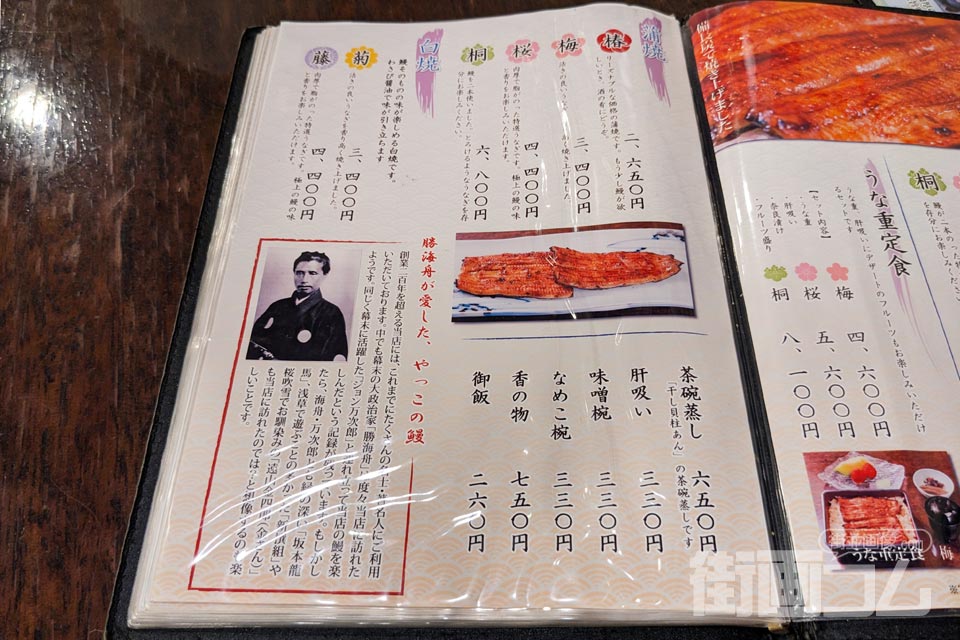 備長炭で焼き上げました
桐
鰻が二本の入った特
を存分にお楽しみください
うな重定食
うな重、肝吸いにデザートのフルーツもお楽しみいただけ
るセットです。
【セット内容】
・うな重
・肝吸い
・奈良漬け
・フルーツ盛り
梅 四、六〇〇円
桜 五、六〇〇円
桐 八、一〇〇円
うな重定食 梅
蒲焼
椿
リーズナブルな価格の蒲焼です。もう少し鰻が欲
しいとき、酒の肴にどうぞ。
二、六五〇円
梅
活きの良いうなぎを香り高く焼き上げました
三、四〇〇円
桜
肉厚で脂がのった特選うなぎです。極上の鰻の味
と香りをお楽しみいただけます。
四、四〇〇円
桐
鰻を二本使いました。とろけるようなうなぎを存
分にお楽しみください。
六、八〇〇円
白焼
鰻そのものの味が楽しめる白焼です。
わさび醤油で味が引き立ちます
菊
活きの良いうなぎを香り高く焼き上げました。
三、四〇〇円
藤
肉厚で脂がのった特選うなぎです。極上の鰻の味
と香りをお楽しみいただけます。
四、四〇〇円
茶碗蒸し
「干し貝柱あん」の茶碗蒸しです
六五〇円
肝吸い 三三〇円
味噌椀 三三〇円
なめこ椀 三三〇円
香の物 七五〇円
御飯 二六〇円
勝海舟が愛した、やっこの鰻
創業二百年を超える当店には、これまでにたくさんの名士・著名人にご利用
いただいております。中でも幕末の大政治家「勝海舟」は度々当店に訪れた
ようです。同じく幕末に活躍した「ジョン万次郎」と連れ立って当店の鰻を楽
しんだという記録が残っています。もしかし
たら、海舟・万次郎とも縁の深い「坂本龍
馬」、浅草で遊ぶことの多かった「新撰組」や
桜吹雪でお馴染みの「遠山金四郎（金さん）」
も当店に訪れたのでは？と想像するのも楽
しいことです。
街画コム